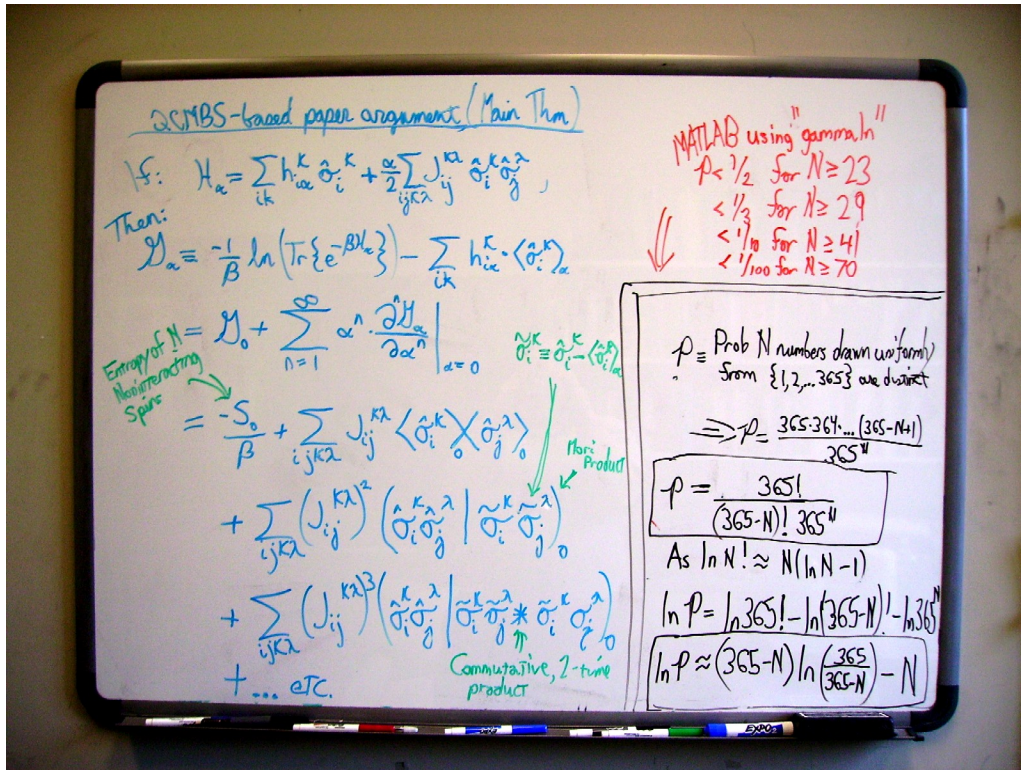 QCMBS-based paper argument (Main Thm)
If: H_α = ∑_{ik} h_{iα}^κ σ̂_i^κ + α/2 ∑_{ijκλ} J_{ij}^{κλ} σ̂_i^κ σ̂_j^λ ,
Then:
𝒢_α ≡ -1/β ln(Tr{e^{-βH_α}}) - ∑_{ik} h_{iα}^κ · ⟨σ̂_i^κ⟩_α
= 𝒢_0 + ∑_{n=1}^∞ α^n · ∂^n 𝒢_α / ∂α^n |_{α=0}
σ̃_i^κ ≡ σ̂_i^κ - ⟨σ̂_i^κ⟩_α
Entropy of N
Noninteracting
Spins
= -S_0/β + ∑_{ijκλ} J_{ij}^{κλ} ⟨σ̂_i^κ⟩_0 ⟨σ̂_j^λ⟩_0
Mori
Product
+ ∑_{ijκλ} (J_{ij}^{κλ})^2 (σ̂_i^κ σ̂_j^λ | σ̃_i^κ σ̃_j^λ)_0
+ ∑_{ijκλ} (J_{ij}^{κλ})^3 (σ̂_i^κ σ̂_j^λ | σ̃_i^κ σ̃_j^λ * σ̃_i^κ σ̃_j^λ)_0
Commutative, 2-time
product
+ ... etc.
MATLAB using "gammaln"
P < 1/2 for N ≥ 23
< 1/3 for N ≥ 29
< 1/10 for N ≥ 41
< 1/100 for N ≥ 70
P ≡ Prob N numbers drawn uniformly
from {1,2,...365} are distinct
⇒ P = 365·364·...(365-N+1) / 365^N
P = 365! / (365-N)! 365^N
As ln N! ≈ N(ln N - 1)
ln P = ln 365! - ln(365-N)! - ln 365^N
ln P ≈ (365-N) ln(365/(365-N)) - N
EXPO